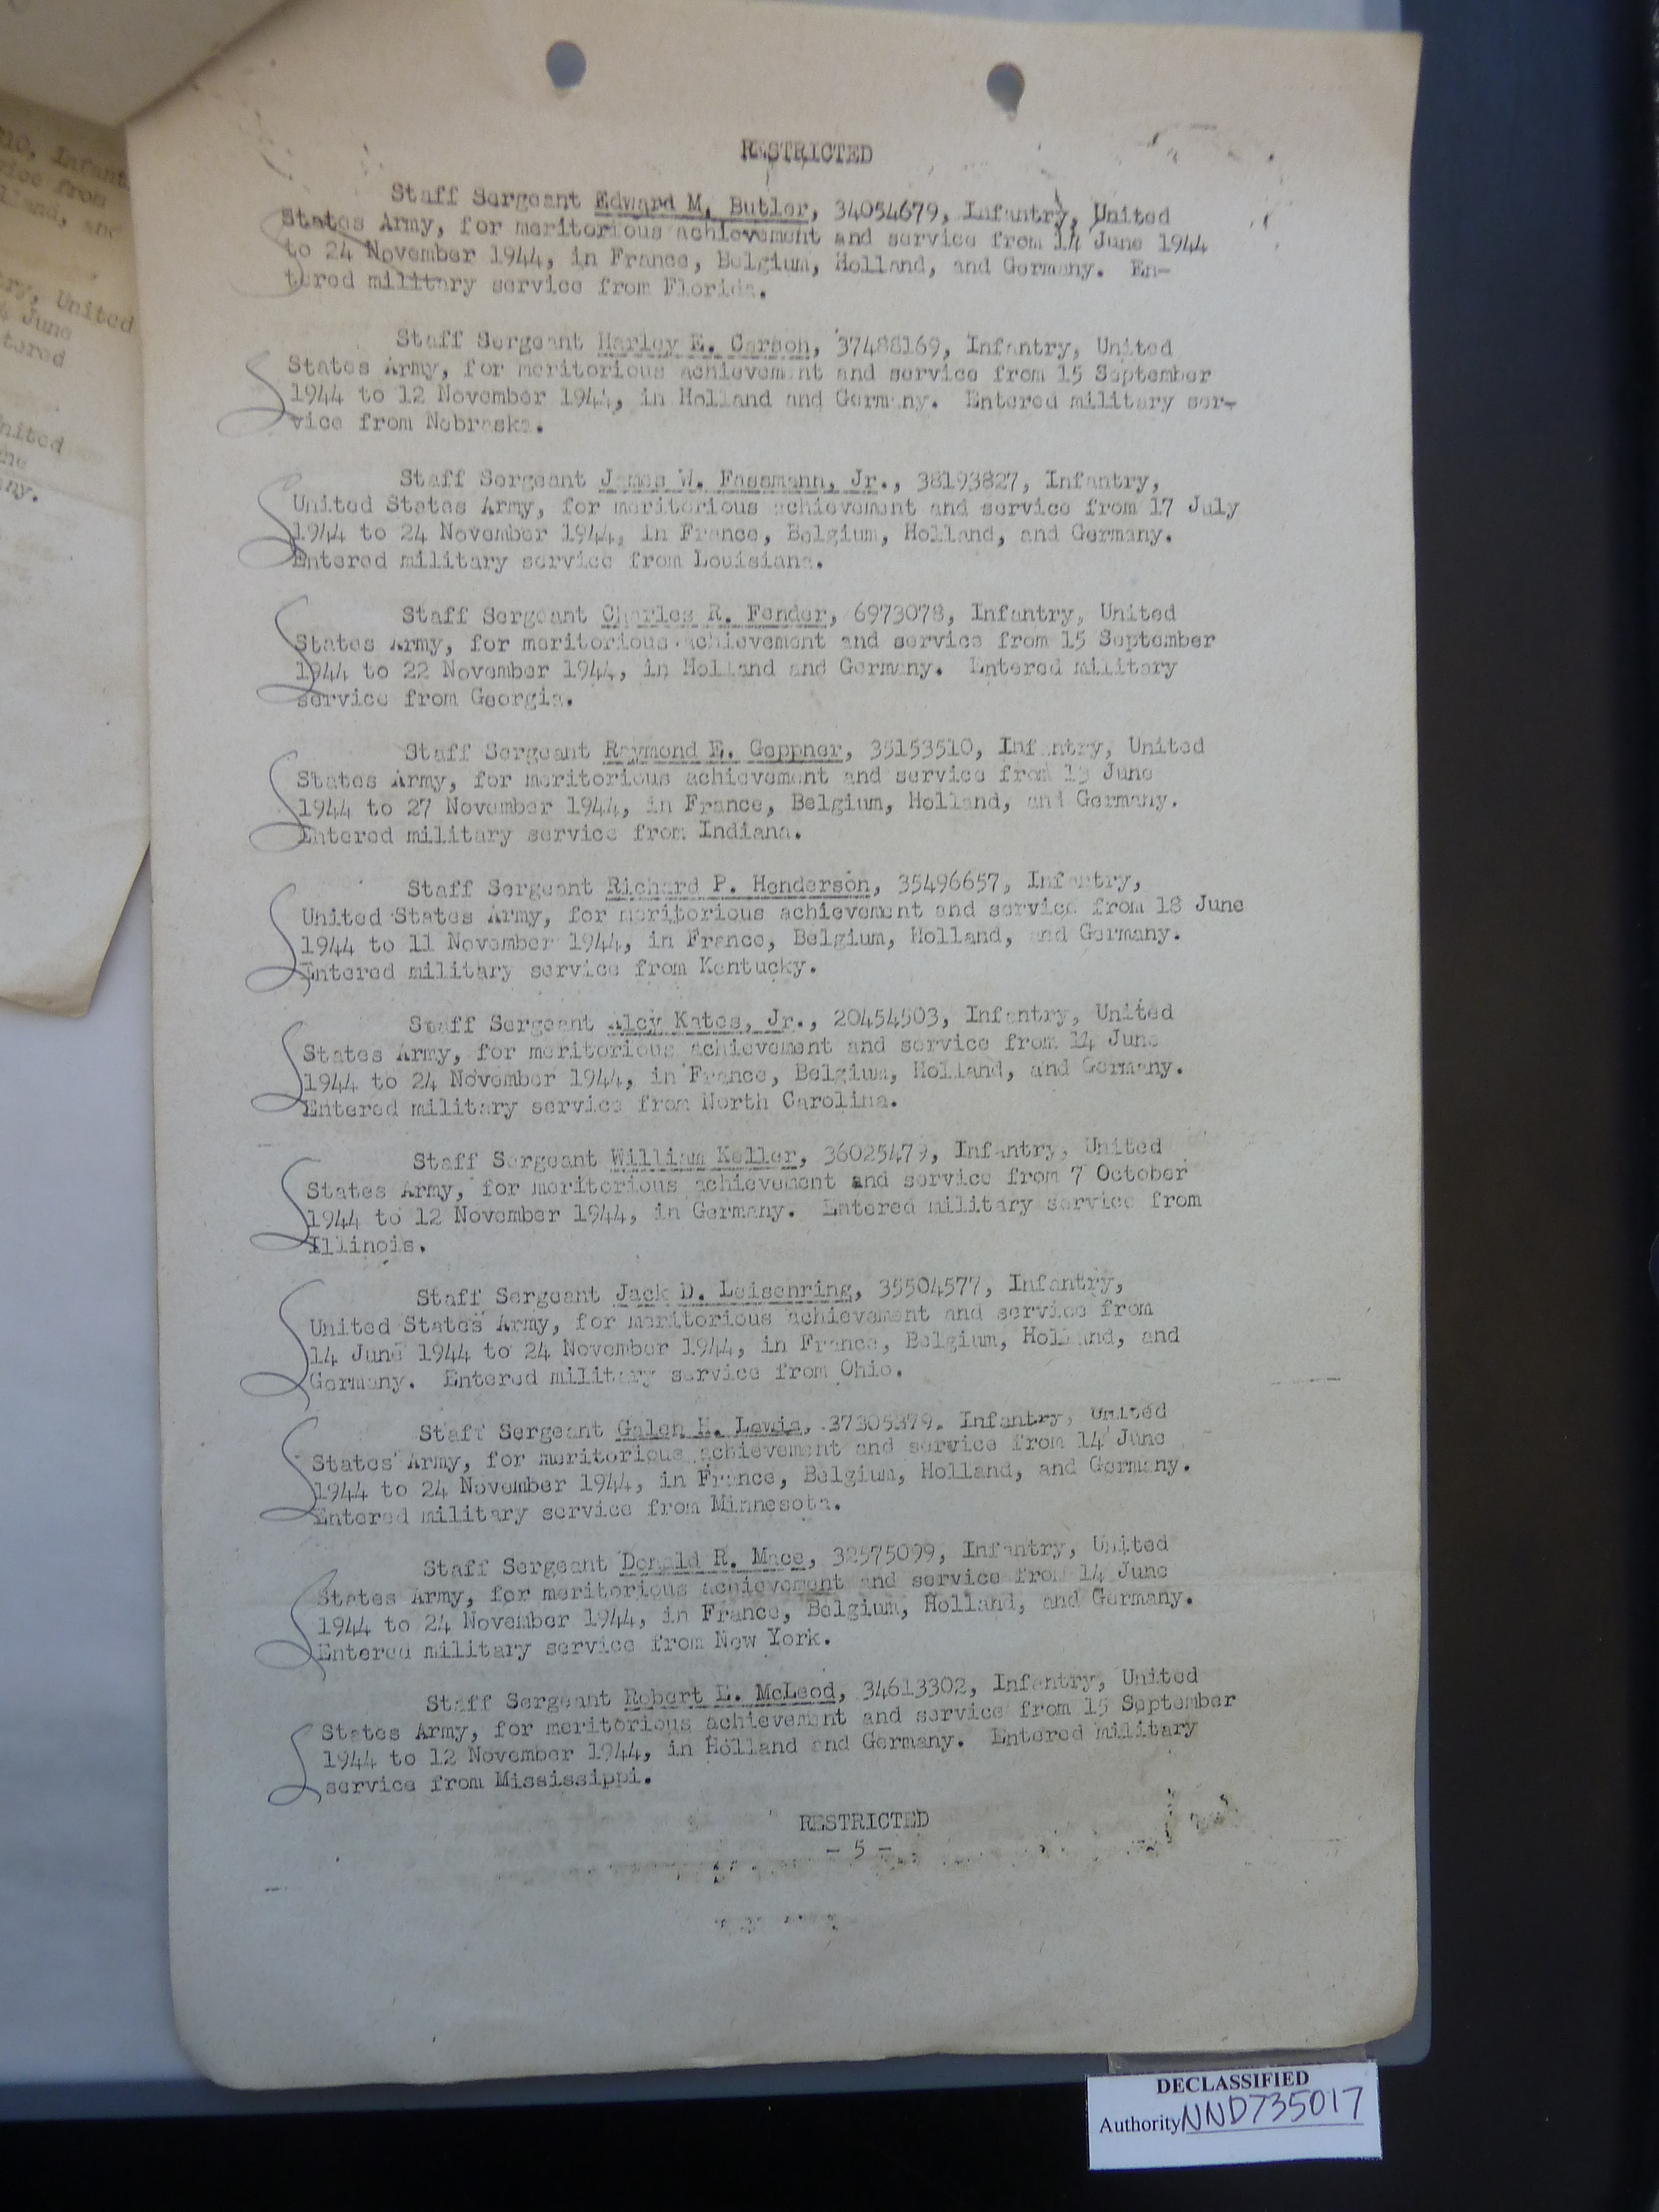 RESTRICTED
Staff Sergeant Edward M. Butler, 34054679, Infantry, United
States Army, for meritorious achievement and service from 14 June 1944
to 24 November 1944, in France, Belgium, Holland, and Germany. En-
tered military service from Florida.
Staff Sergeant Harley E. Carson, 37488169, Infantry, United
States Army, for meritorious achievement and service from 15 September
1944 to 12 November 1944, in Holland and Germany. Entered military ser-
vice from Nebraska.
Staff Sergeant James W. Fassmann, Jr., 38193827, Infantry,
United States Army, for meritorious achievement and service from 17 July
1944 to 24 November 1944, in France, Belgium, Holland, and Germany.
Entered military service from Louisiana.
Staff Sergeant Charles R. Fender, 6973078, Infantry, United
States Army, for meritorious achievement and service from 15 September
1944 to 22 November 1944, in Holland and Germany. Entered military
service from Georgia.
Staff Sergeant Raymond E. Geppner, 35153510, Infantry, United
States Army, for meritorious achievement and service from 13 June
1944 to 27 November 1944, in France, Belgium, Holland, and Germany.
Entered military service from Indiana.
Staff Sergeant Richard P. Henderson, 35496657, Infantry,
United States Army, for meritorious achievement and service from 18 June
1944 to 11 November 1944, in France, Belgium, Holland, and Germany.
Entered military service from Kentucky.
Staff Sergeant Alcy Kates, Jr., 20454503, Infantry, United
States Army, for meritorious achievement and service from 14 June
1944 to 24 November 1944, in France, Belgium, Holland, and Germany.
Entered military service from North Carolina.
Staff Sergeant William Keller, 36025479, Infantry, United
States Army, for meritorious achievement and service from 7 October
1944 to 12 November 1944, in Germany. Entered military service from
Illinois.
Staff Sergeant Jack D. Leisenring, 35504577, Infantry,
United States Army, for meritorious achievement and service from
14 June 1944 to 24 November 1944, in France, Belgium, Holland, and
Germany. Entered military service from Ohio.
Staff Sergeant Galen H. Lewis, 37305379. Infantry, United
States Army, for meritorious achievement and service from 14 June
1944 to 24 November 1944, in France, Belgium, Holland, and Germany.
Entered military service from Minnesota.
Staff Sergeant Donald R. Mace, 32575099, Infantry, United
States Army, for meritorious achievement and service from 14 June
1944 to 24 November 1944, in France, Belgium, Holland, and Germany.
Entered military service from New York.
Staff Sergeant Robert E. McLeod, 34613302, Infantry, United
States Army, for meritorious achievement and service from 15 September
1944 to 12 November 1944, in Holland and Germany. Entered military
service from Mississippi.
RESTRICTED
- 5 -
DECLASSIFIED
Authority NND735017